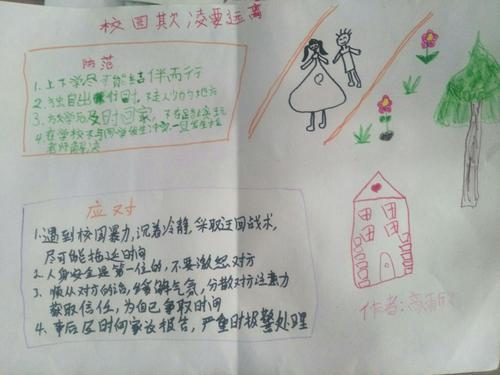 校园欺凌要远离
防范
1.上下学尽可能结伴而行
2.独自出时,不走人少的地方
3.放学后及时回家,不在路上贪玩
4.在学校不与同学发生冲突,一旦发生找
老师解决
应对
1.遇到校园暴力,沉着冷静,采取迂回战术,
尽可能拖延时间
2.人身安全是第一位的,不要激怒对方
3.顺从对方的话,缓解气氛,分散对方注意力
获取信任,为自己争取时间
4.事后及时向家长报告,严重时报警处理
作者:高